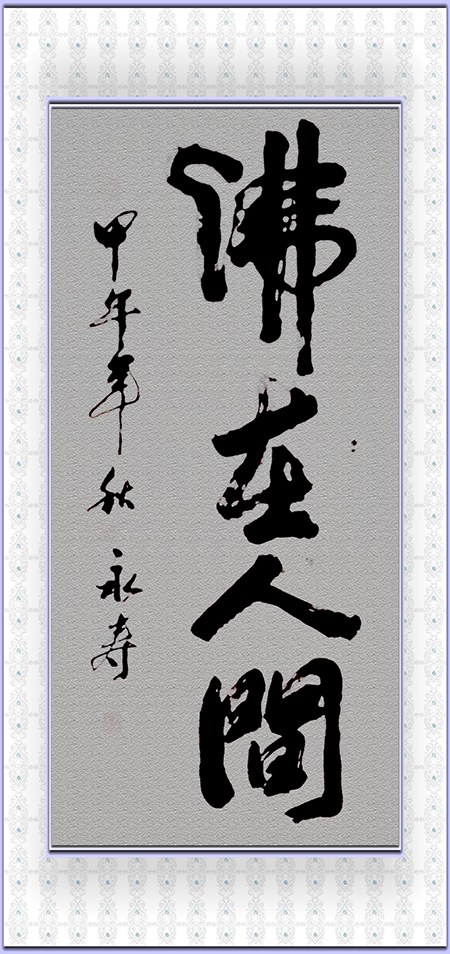 佛在人間
甲午年秋 永寿